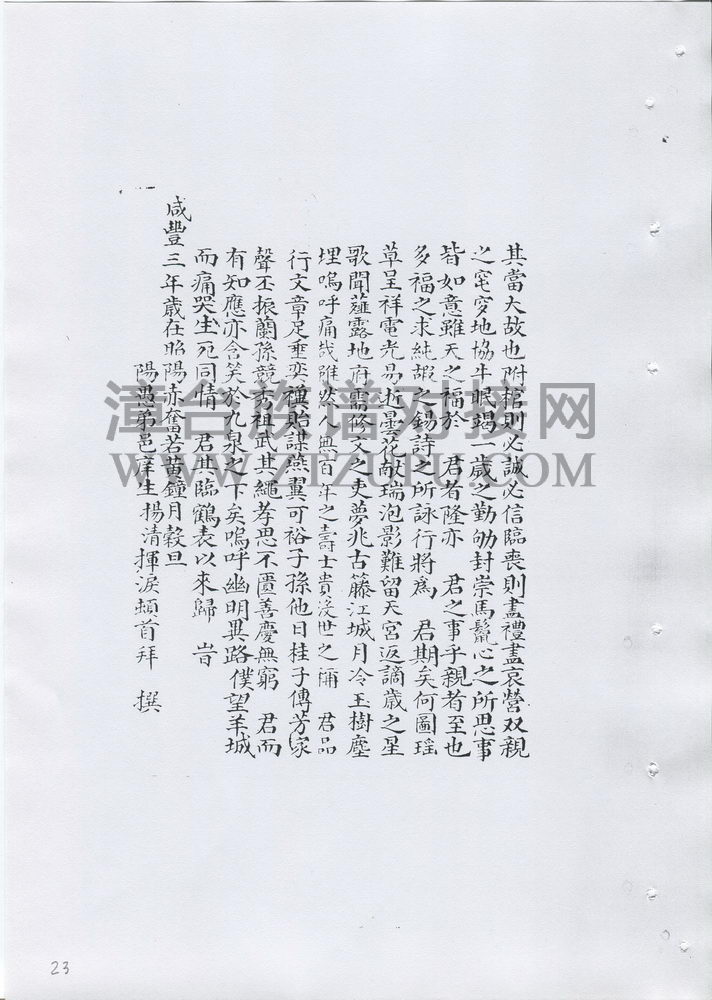 其當大故也附棺則必誠必信臨喪則盡禮盡哀營双親
之窀穸地協牛眠竭一歲之勤劬封崇馬鬣心之所思事
皆如意雖天之福於 君者隆亦 君之事乎親者至也
多福之求純嘏之錫詩之所詠行將為 君期矣何圖瑶
草呈祥電光易逝曇花獻瑞泡影難留天宮返謫歲之星
歌聞薤露地府需修文之吏夢兆古籐江城月冷玉樹塵
埋嗚呼痛哉雖然人無百年之壽士貴沒世之稱 君品
行文章足垂奕禩貽謀燕翼可裕子孫他日桂子傳芳家
聲丕振蘭孫競秀祖武其繩孝思不匱善慶無窮 君而
有知應亦含笑於九泉之下矣嗚呼幽明異路僕望羊城
而痛哭生死同情 君其臨鶴表以來歸 旹
咸豐三年歲在昭陽赤奮若黃鐘月穀旦
陽愚弟邑庠生楊清揮淚頓首拜 撰
漳台族谱对接网
WWW.ZTZUPU.COM
23